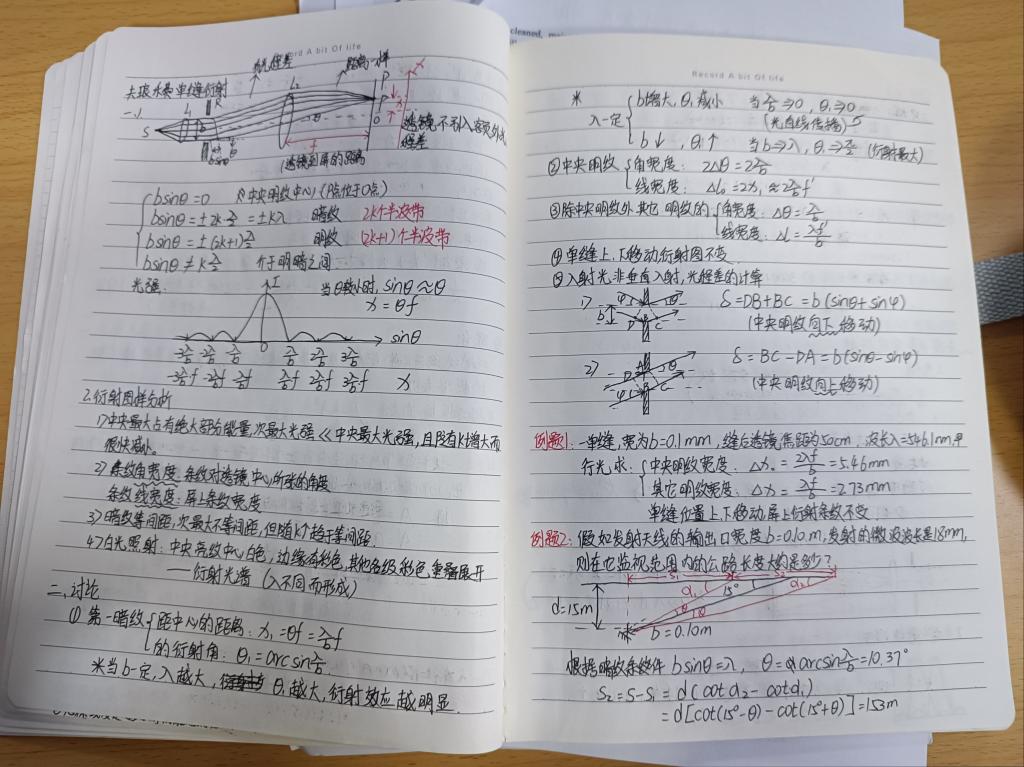 cleaned,
Record A bit Of life
夫琅禾费单缝衍射
光程差
距离一样
一、
S
L₁
L₂
R
b
bsinθ
θ
f
P
x
O
(透镜到屏的距离)
透镜不引入额外光程差
bsinθ=0 中央明纹中心(P点位于O点)
bsinθ=±2k λ/2=±kλ 暗纹 2k个半波带
bsinθ=±(2k+1)λ/2 明纹 (2k+1)个半波带
bsinθ≠k λ/2 介于明暗之间
光强: I 当θ较小时, sinθ≈θ
x=θf
-3λ/b -2λ/b -λ/b 0 λ/b 2λ/b 3λ/b sinθ
-3λ/b f -2λ/b f -λ/b f λ/b f 2λ/b f 3λ/b f x
2.衍射图样分析
1)中央最大点有绝大部分能量,次最大光强≪中央最大光强,且随有k↑增大而
很快减小。
2)条纹角宽度:条纹对透镜中心所张的角度
条纹线宽度:屏上条纹宽度
3)暗纹等间距,次最大不等间距,但随k↑趋于等间距.
4)白光照射:中央亮纹中心白色,边缘有彩色,其他各级彩色重叠展开
——衍射光谱(λ不同而形成)
二、讨论
① 第一暗纹 距中心的距离: x₁=θf=λ/b f
的衍射角: θ₁=arcsin λ/b
*当b一定,λ越大, θ₁越大,衍射效应越明显.
Record A bit Of life
*
λ一定 b增大,θ₁减小 当λ/b→0, θ₁→0
(光直线传播)
b↓, θ₁↑ 当b→λ, θ₁→π/2 (衍射最大)
②中央明纹 角宽度: 2Δθ=2λ/b
线宽度: Δl₀=2x₁≈2λ/b f'
③除中央明纹外其它明纹的 角宽度: Δθ=λ/b
线宽度: Δl=λf'/b
④单缝上、下移动衍射图不变.
⑤入射光非垂直入射,光程差的计算
1) b φ θ D C δ=DB+BC=b(sinθ+sinφ)
(中央明纹向下移动)
2) φ θ D C δ=BC-DA=b(sinθ-sinφ)
(中央明纹向上移动)
例题1:一单缝,宽为b=0.1mm,缝后透镜焦距为50cm,波长λ=546.1nm平
行光求: 中央明纹宽度: Δx₀=2λf/b=5.46mm
其它明纹宽度: Δx=λf/b=2.73mm
单缝位置上、下移动,屏上衍射条纹不变.
例题2:假如发射天线的输出口宽度b=0.10m,发射的微波波长是18mm,
则在它监视范围内的公路长度大约是多少?
S₁ S₂
α₁ 15° α₂
d=15m
θ θ
b=0.10m
根据暗纹条件 bsinθ=λ, θ=arcsin λ/b=10.37°
S₂=S-S₁=d(cotα₂-cotα₁)
=d[cot(15°-θ)-cot(15°+θ)]=153m